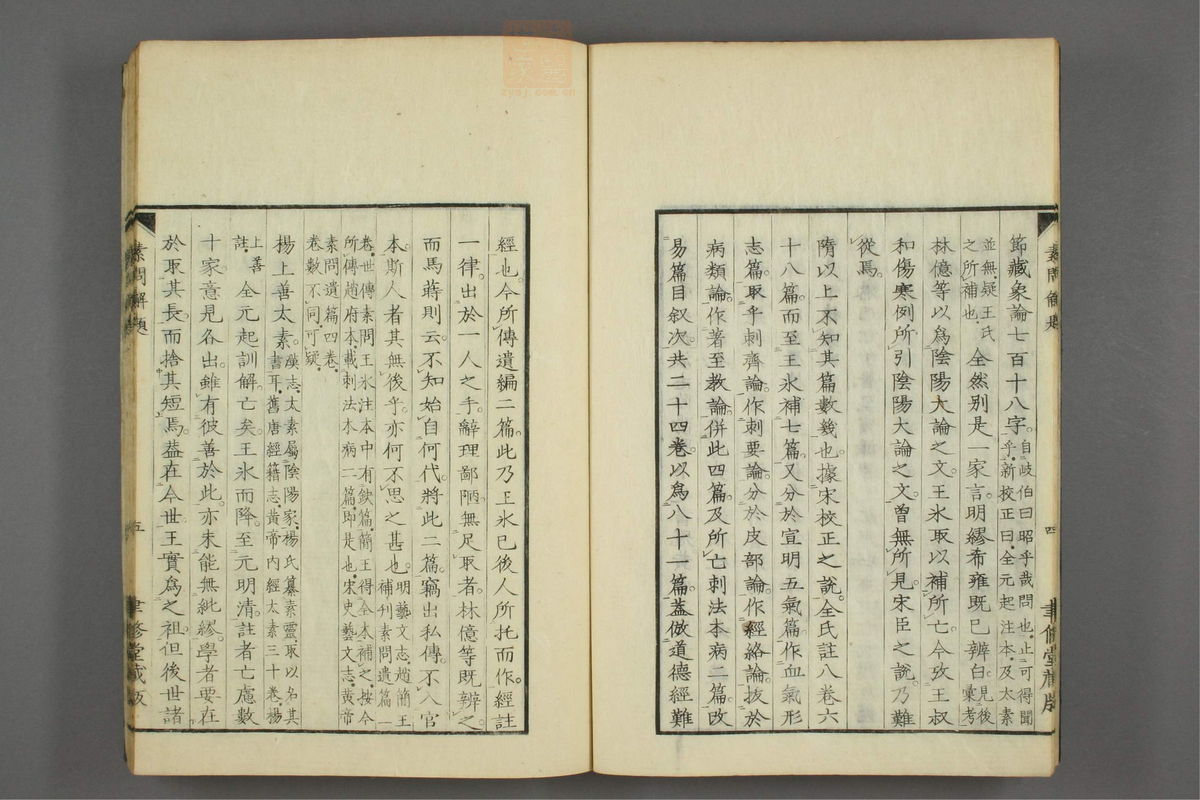 節藏象論七百十八字。自岐伯曰昭乎哉問也。止可得聞乎。新校正曰。全元起注本。及太素
並無。疑王氏之所補也。全然别是一家言。明繆布雍既已辨白。見後彙考
林億等以爲陰陽大論之文。王氷取以補所亡。今攷王叔
和傷寒例所引陰陽大論之文。曾無所見。宋臣之說。乃難
從焉。
隋以上不知其篇數幾也。據宋校正之說。全氏註八卷六
十八篇。而至王氷補七篇。又分於宣明五氣篇。作血氣形
志篇。取乎刺齊論。作刺要論。分於皮部論。作經絡論。拔於
病類論。作著至教論。併此四篇。及所亡刺法本病二篇。改
易篇目叙次。共二十四卷。以爲八十一篇。葢倣道德經難
素問解題
四
聿修堂藏版
經也。今所傳遺編二篇。此乃王氷已後人所托而作。經註
一律。出於一人之手。辭理鄙陋。無足取者。林億等既辨之。
而馬蒋則云。不知始自何代。將此二篇。竊出私傳。不入官
本。斯人者其無後乎。亦何不思之甚也。明藝文志。趙簡王補刊素問遺篇一
卷。世傳素問王氷注本中有欽篇。簡王得全本補之。按今所傳趙府本。載刺法本病二篇。即是也。宋史藝文志。黄帝
素問遺篇四卷。卷數不同。可疑。
楊上善太素。漢志。太素屬陰陽家。楊氏纂素靈。取以名其書耳。舊唐經籍志。黄帝内經太素三十卷。楊
上善註。全元起訓解亡矣。王氷而降。至元明清。註者亡慮數
十家。意見各出。雖有彼善於此。亦未能無紕繆。學者要在
於取其長。而捨其短焉。葢在今世。王實爲之祖。但後世諸
素問解題
五
聿修堂藏版